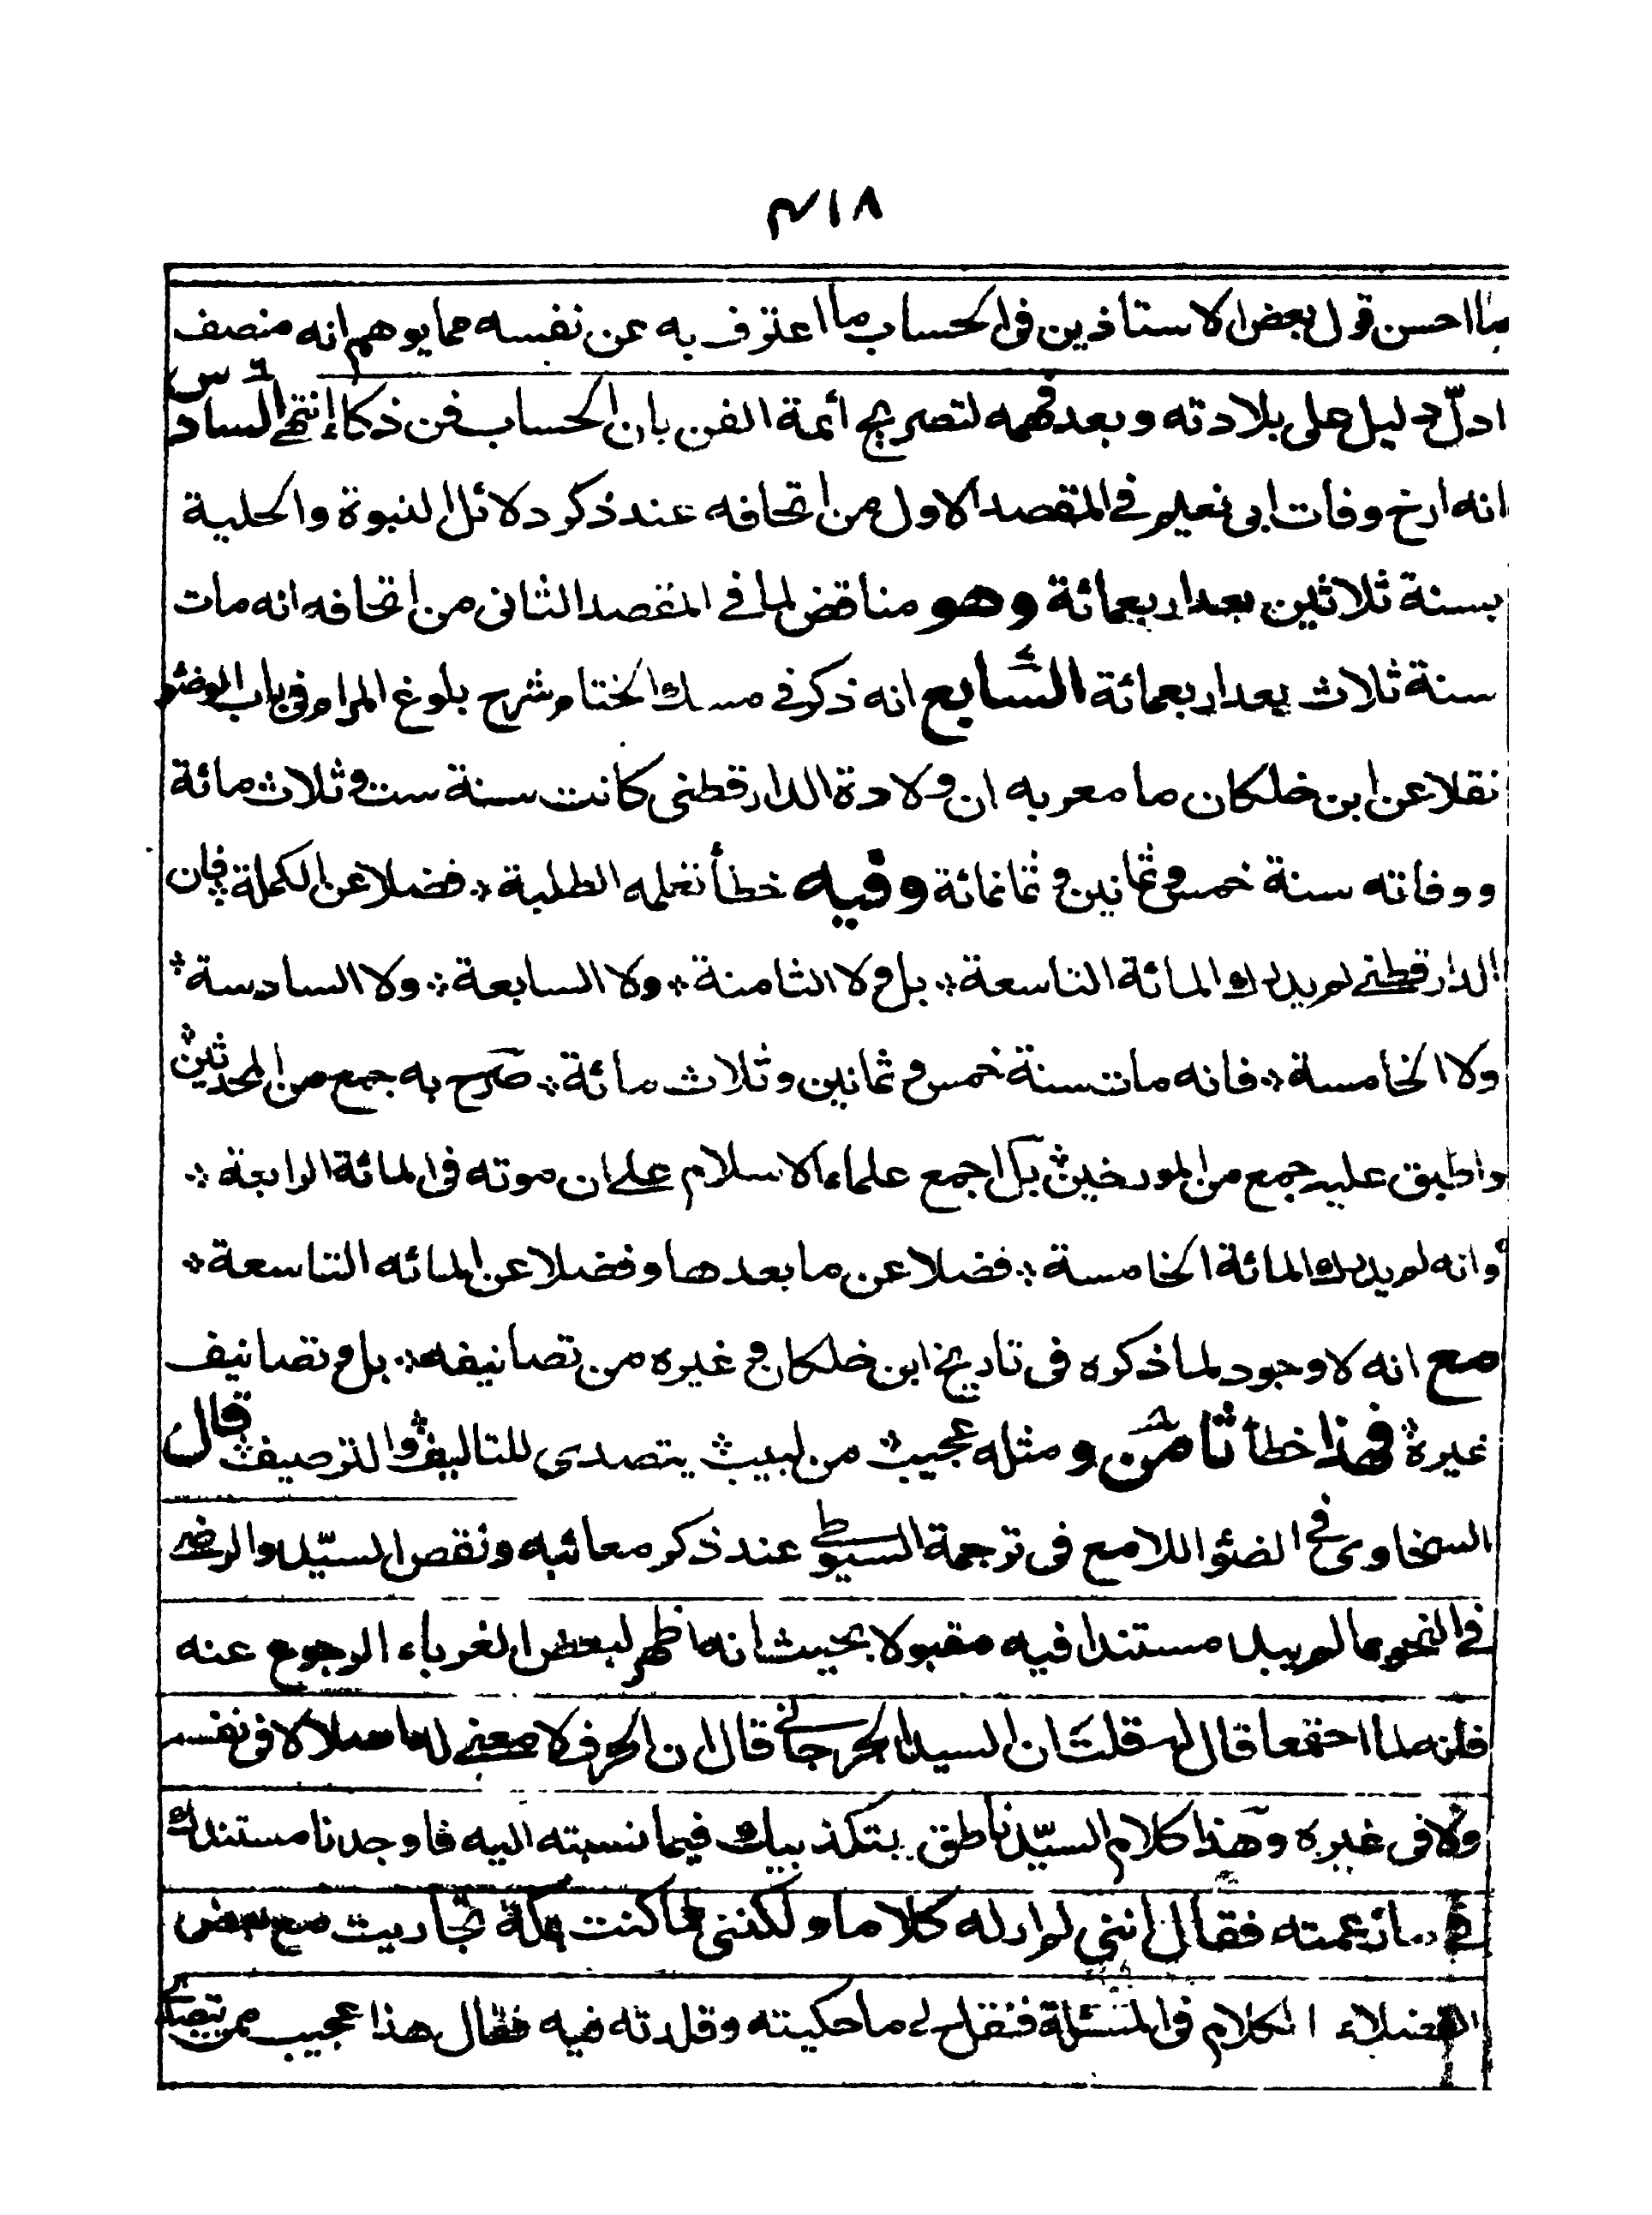 ۴۱۸
ما احسن قول بعض الاستاذين في الحساب ما اعترف به عن نفسه مما يوهم انه منصف
ادلّ دليل على بلادته وبعد فهمه لتصريح أئمة الفن بان الحساب فن ذكاء إنتهى السادس
انه ارخ وفات ابى نعيم في المقصد الاول من اتحافه عند ذكر دلائل النبوة والحلية
بسنة ثلاثين بعد اربعمائة وهو مناقض لما في المقصد الثانى من اتحافه انه مات
سنة ثلاث بعد اربعمائة السّابع انه ذكر في مسك الختام شرح بلوغ المرام في باب الوضئو
نقلا عن ابن خلكان ما معربه ان ولادة الدارقطنى كانت سنة ست وثلاث مائة
ووفاته سنة خمس وثمانين وثمانمائة وفيه خطأ تعلمه الطلبة ؞ فضلا عن الكملة ؞ فان
الدارقطنے لم يدرك المائة التاسعة ؞ بل ولا الثامنة ؞ ولا السابعة ؞ ولا السادسة ؞
ولا الخامسة ؞ فانه مات سنة خمس وثمانين وثلاث مائة ؞ صرّح به جمع من المحدثين ؞
واطبق عليه جمع من المورخين ؞ بل اجمع علماء الاسلام علے ان موته في المائة الرابعة ؞
وانه لم يدرك المائة الخامسة ؞ فضلا عن ما بعدها وفضلا عن المائه التاسعة ؞
مع انه لا وجود لما ذكره فى تاريخ ابن خلكان وغيره من تصانيفه ؞ بل وتصانيف
غيره ؞ فهذا خطأ ثامن ومثله عجيب ؞ من لبيب ؞ يتصدى للتاليف ؞ والترصيف ؞ قال
السخاوى في الضئو اللامع فى ترجمة السيوطے عند ذكر معائبه ونقص السيّد والرضے
في النحو مالم يبد مستندا فيه مقبولا بحيث انه اظهر لبعض الغرباء الرجوع عنه
فانه لما اجتمعا قال له قلت ان السيد الجرجانے قال ان الحرف لا معنے له اصلا لا فى نفسه
ولا فى غيره وهذا كلام السيّد ناطق بتكذيبك فيما نسبته اليه فاوجدنا مستندك
في ما زعمته فقال اننى لم ار له كلاما ولكننى لما كنت بمكة تجاريت مع بعض
الفضلاء الكلام في المسئلة فنقل لے ما حكيته وقلدته فيه فقال هذا عجيب ممن